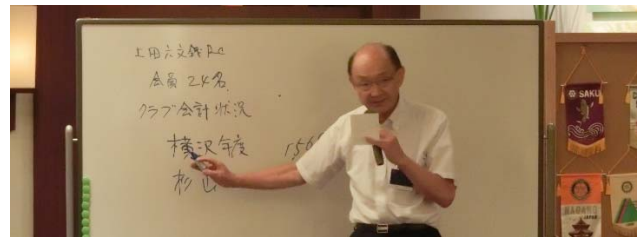 上田六文銭RC
会員 24名
クラブ会計状況
横沢年度 156
杉山
SAKU